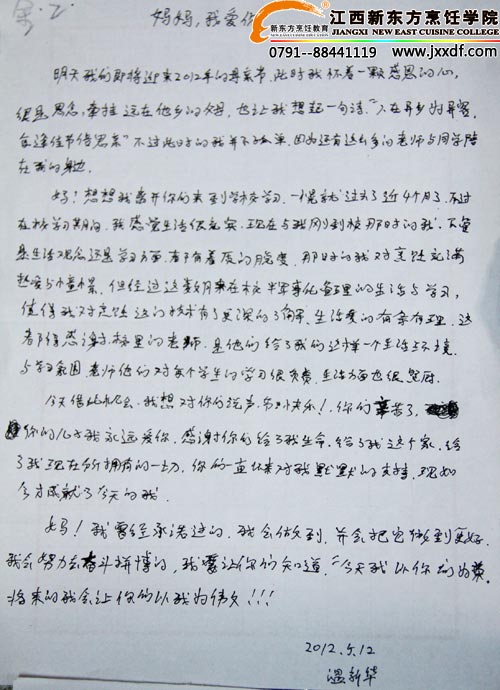 江西新东方烹饪学院
JIANGXI NEW EAST CUISINE COLLEGE
新东方烹饪教育
0791--88441119 www.jxxdf.com
妈妈,我爱你
明天我们即将迎来2012年的母亲节,此时我怀着一颗感恩的心,
很是思念,牵挂远在他乡的父母,也让我想起一句诗,"人在异乡为异客,
每逢佳节倍思亲"不过此时的我并不孤单,因为还有这么多的老师与同学陪
在我的身边.
妈!想想我离开你们来到学校学习,一晃就过去了近4个月了,不过
在校学习期间,我感觉生活很充实,现在与我刚到校那时的我,不管
是生活观念还是学习方面,都有着质的改变,那时的我对烹饪充满
热爱与憧憬,但经过这数月来在校半军事化管理的生活与学习,
使得我对烹饪这门技术有了更深的了解,生活变的有条有理,这
都得感谢校里的老师,是他们给了我们这样一个生活与环境
与学习氛围,老师他们对每个学生的学习很负责,生活方面也很
今天借此机会,我想对你们说声,节日快乐!,你们辛苦了,
你们的儿子我永远爱你,感谢你们给了我生命,给了我这个家,给
了我现在所拥有的一切,你们一直以来对我默默的支持,现如
今才成就了今天的我.
妈!我曾经承诺过的,我会做到,并会把它做到更好,
我会努力去奋斗拼博的,我要让你们知道,"今天我以你们为荣,
将来的我会让你们以我为伟大!!!
2012.5.12
温新华